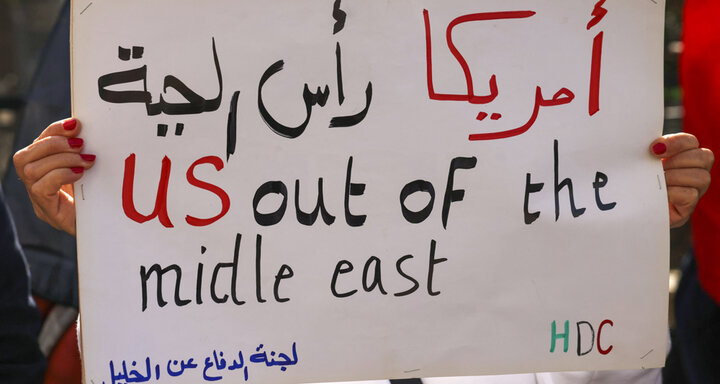 أمريكا رأس الحية
US out of the
midle east
لجنة الدفاع عن الخليل
HDC